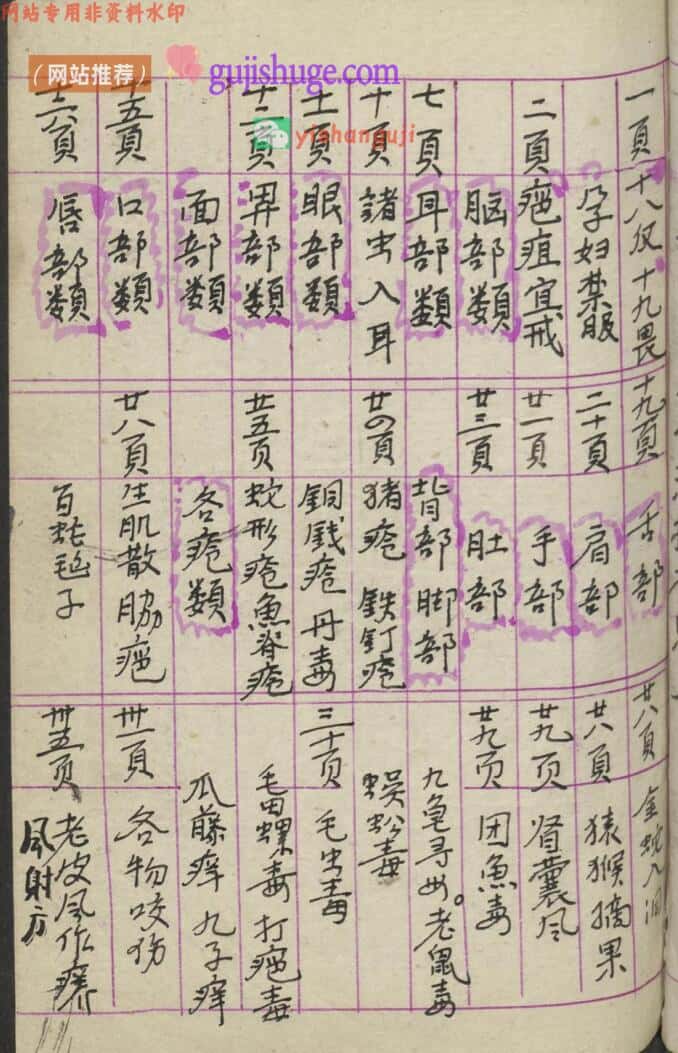 网站专用非资料水印
（网站推荐）
gujishuge.com
yishanguji
一頁 十八反 十九畏
孕妇禁服
二頁 疤疽宜戒
脑部類
七頁 耳部類
十頁 諸虫入耳
十一頁 眼部類
十二頁 鼻部類
面部類
十五頁 口部類
十六頁 唇部類
十九頁 舌部
二十頁 肩部
廿一頁 手部
廿三頁 肚部
背部 脚部
廿四頁 猪疮 鉄釘疮
銅戋疮 丹毒
廿五页 蛇形疮 魚脊疮
各疮類
廿八頁 生肌散 脇疤
百蛇毡子
廿八頁 金蛇入洞
廿八頁 猿猴摘果
廿九页 肾囊风
廿九页 团魚毒
九龟寻母。老鼠毒
蜈蚣毒
三十页 毛虫毒
毛田螺毒 打疤毒
瓜藤痒 九子痒
卅一頁 各物咬伤
卅五页 老皮风作癢
风射方